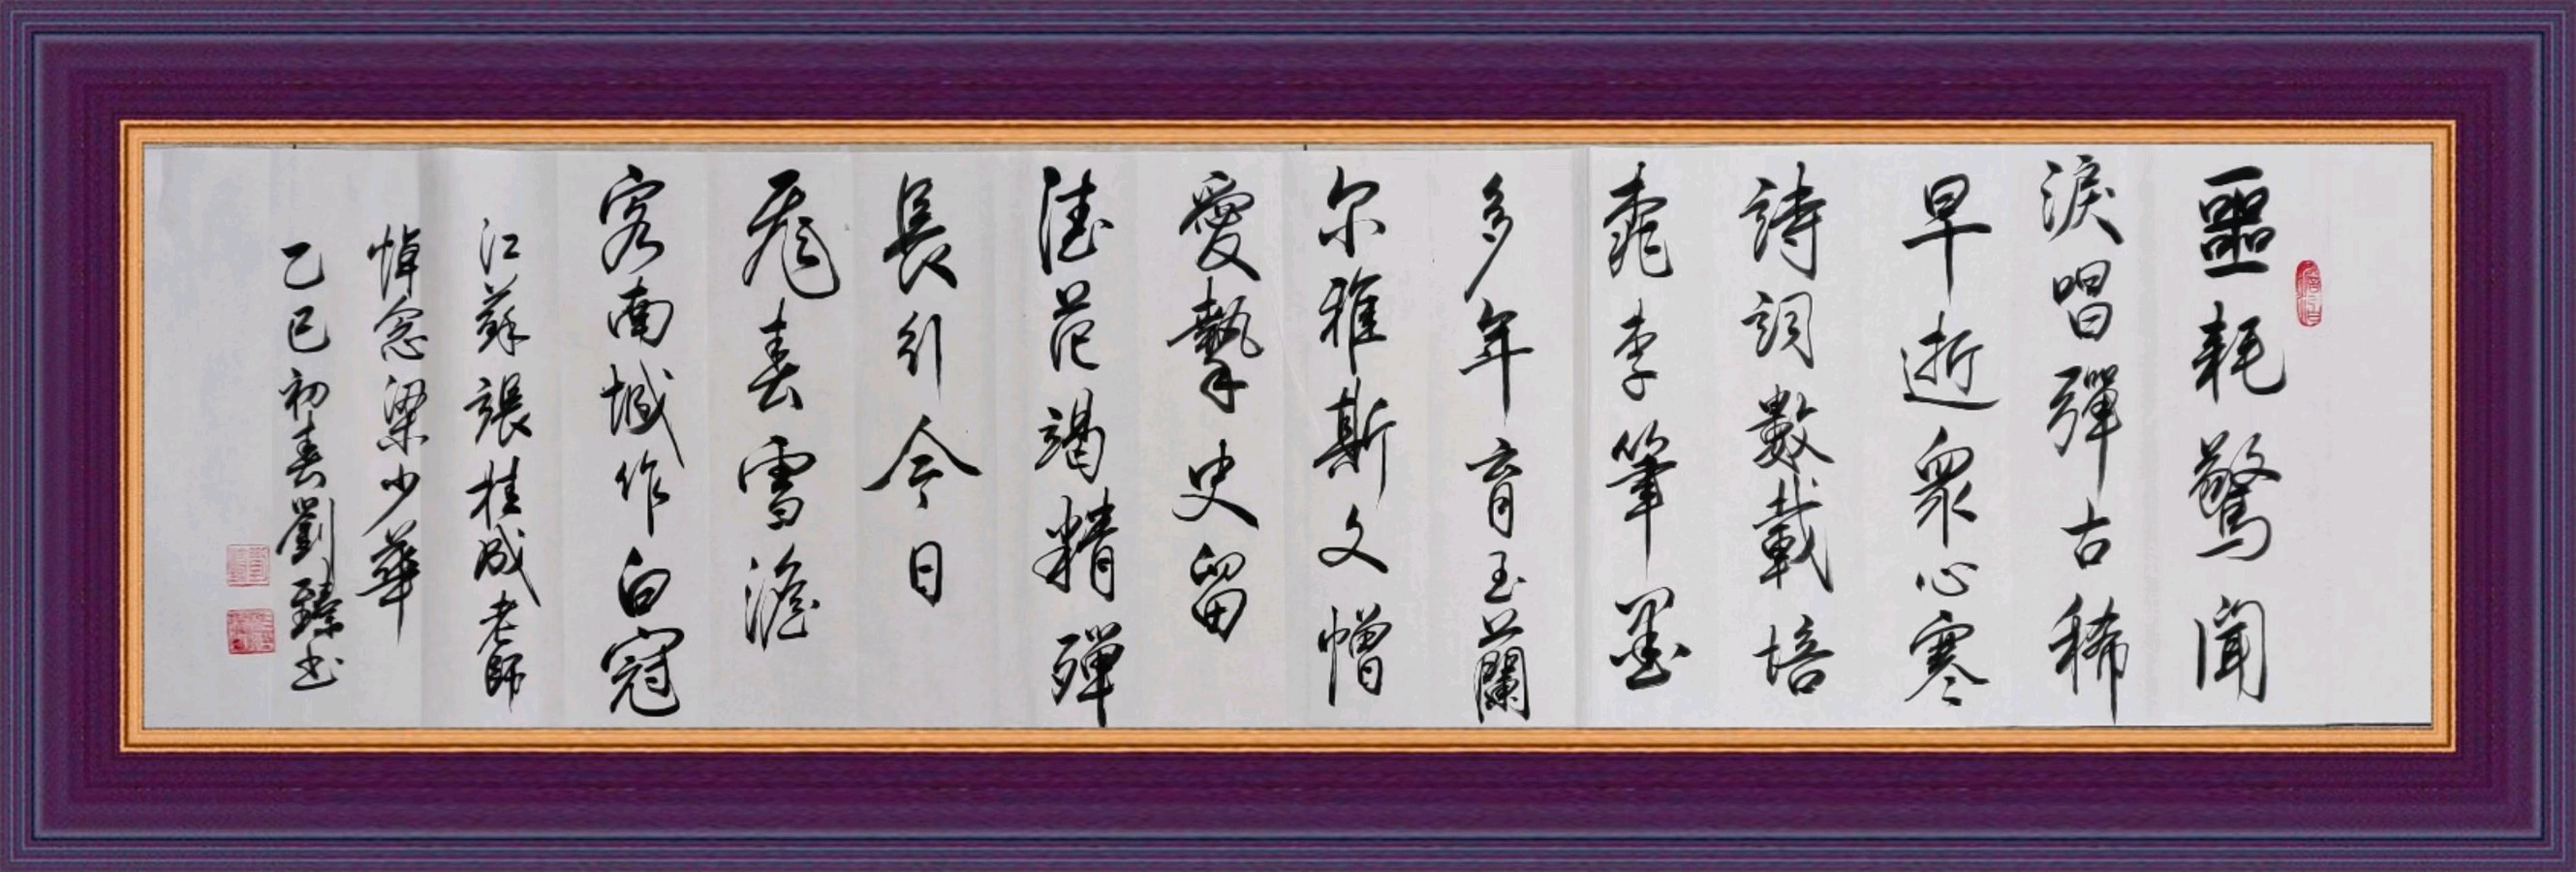 噩耗驚聞
淚唱彈古稀
早逝衆心寒
詩詞數載培
桃李筆墨
多年育玉蘭
尔雅斯文憎
愛摯史留
德范竭精殫
長引今日
飛春雪澹
客南城作白冠
江蘇張桂成老師
悼念梁少華
乙巳初春劉臻书